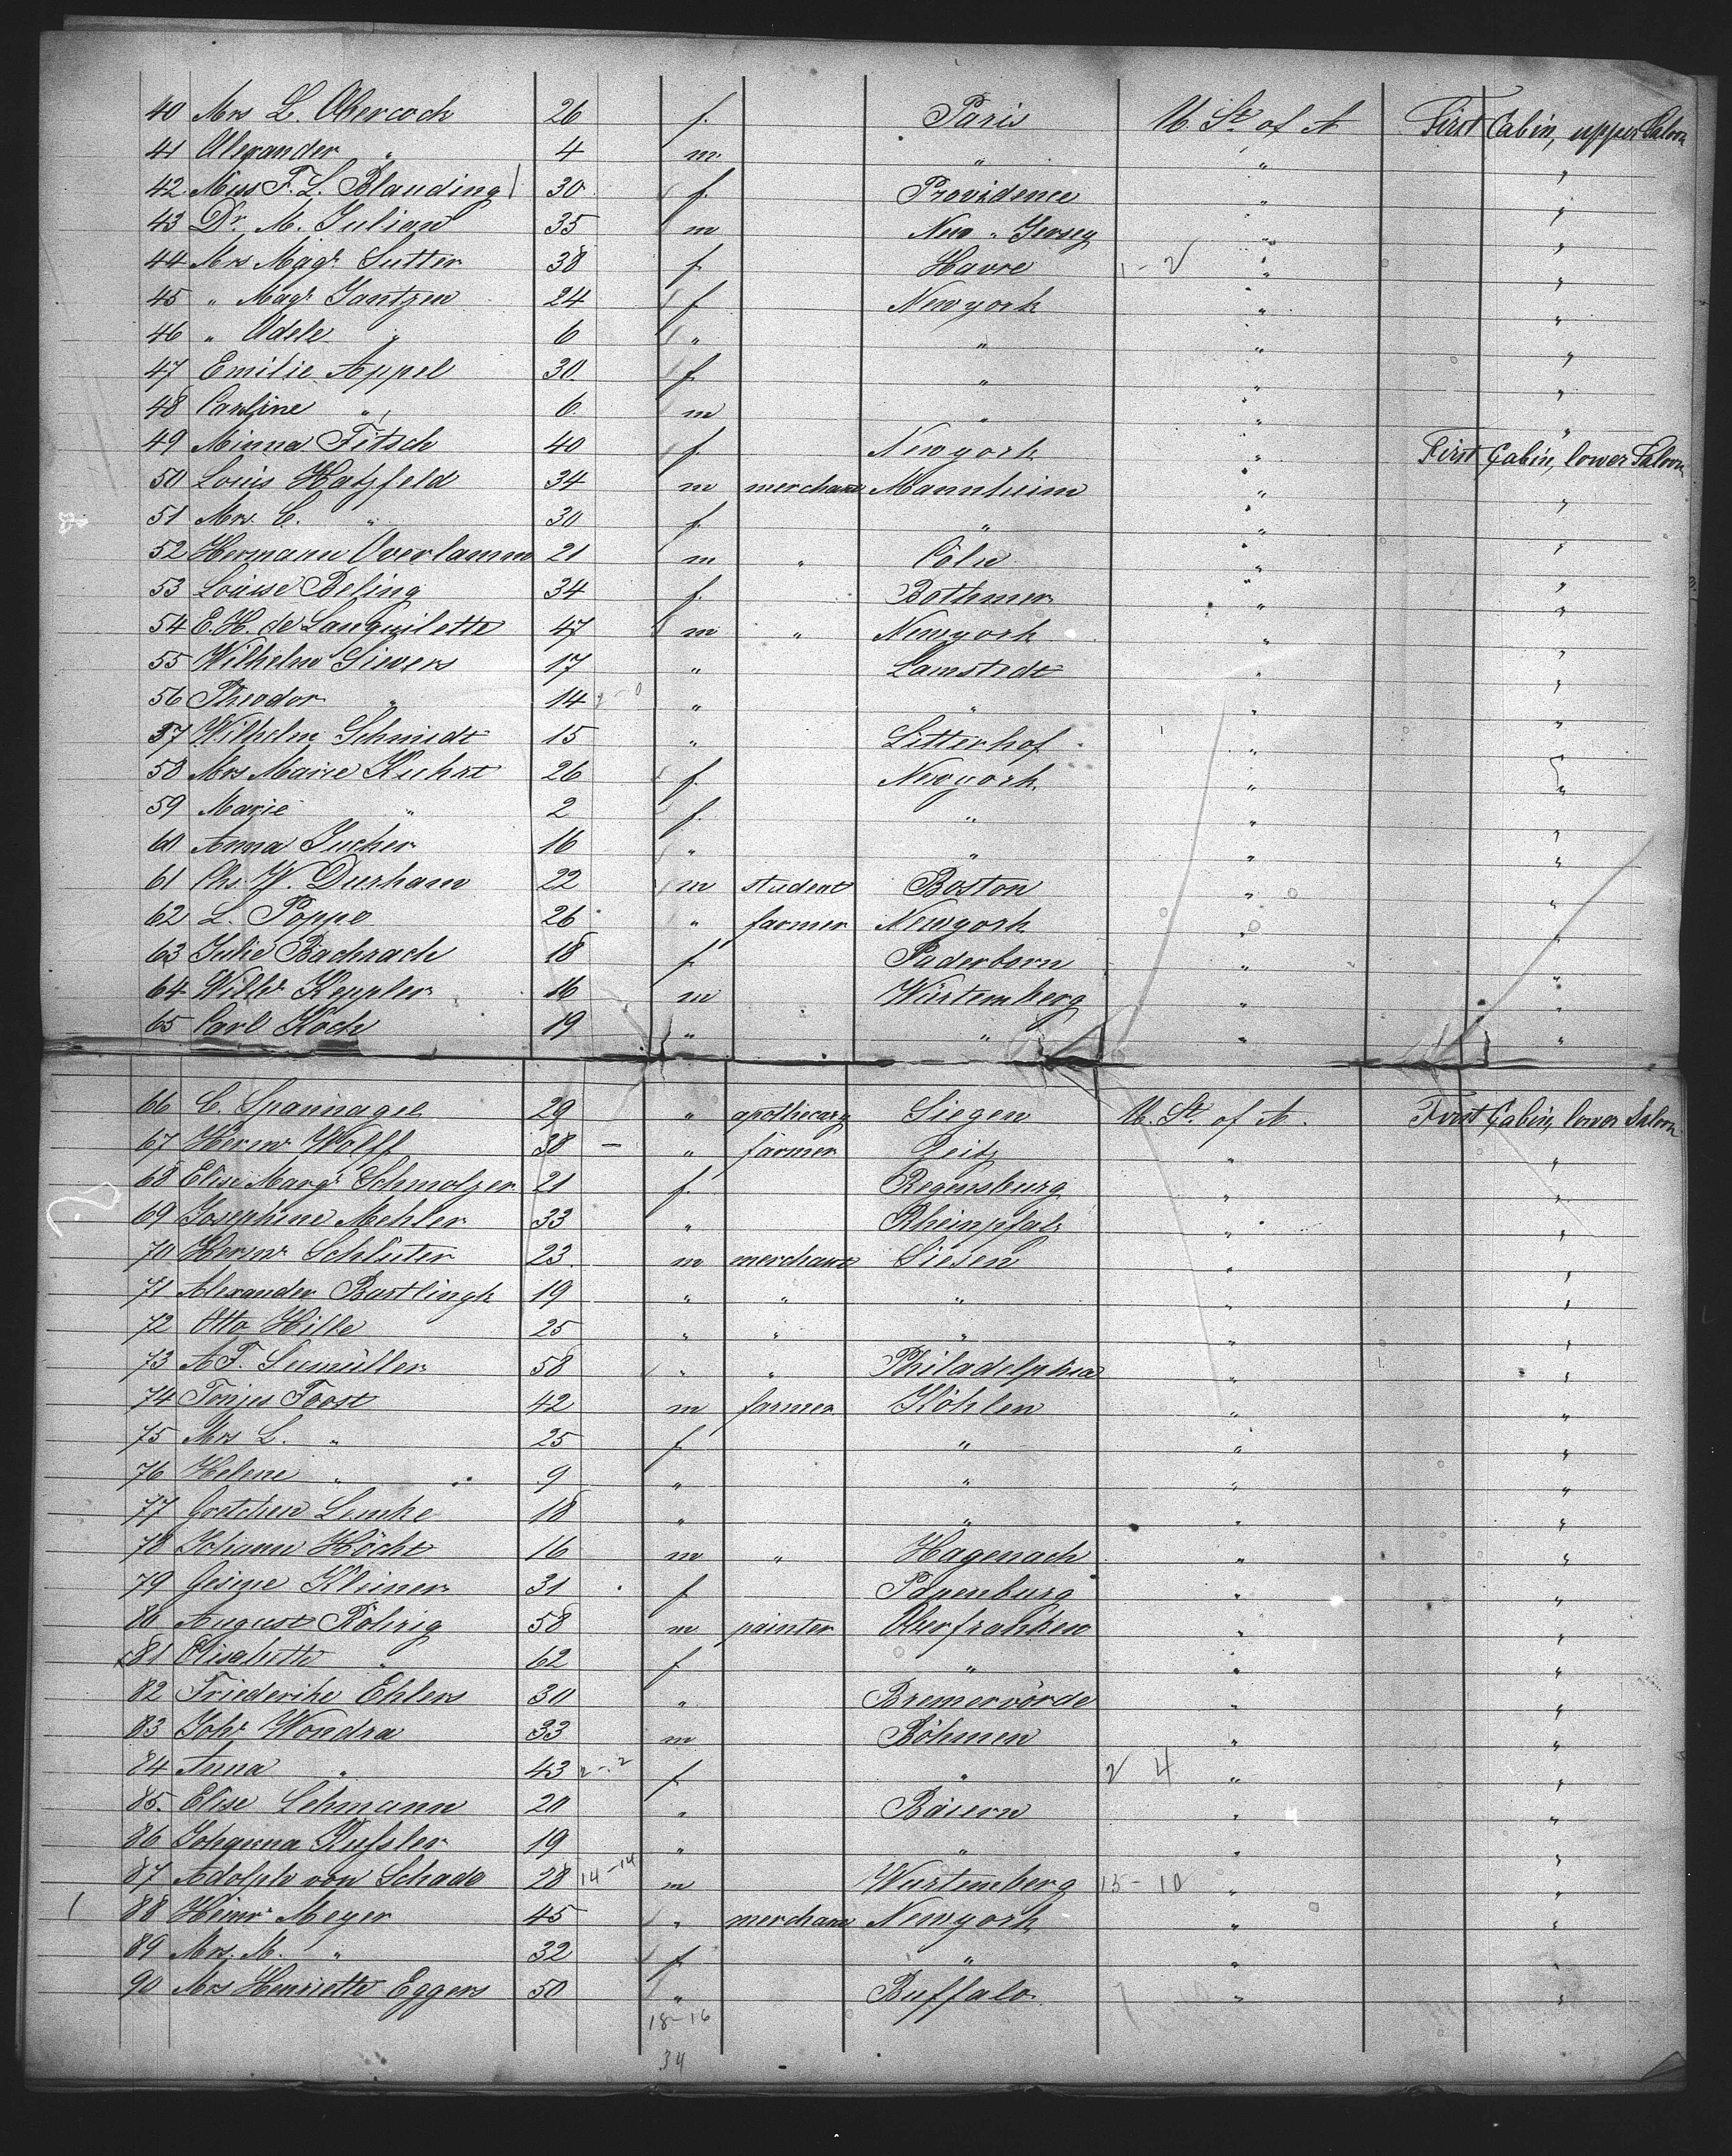 40 Mrs L. Obercock 26 f. Paris U. St. of A First Cabin, upper Saloon
41 Alexander " 4 m. " " "
42 Miss F. L. Blauding 30 f. Providence " "
43 Dr. M. Julian 35 m New-Jersey " "
44 Mrs Magd. Sutter 38 f Havre 1-2 " "
45 " Magd. Jantzen 24 f Newyork " "
46 " Adele " 6 " " " "
47 Emilie Appel 30. f " " "
48 Carline " 6. m " " "
49 Minna Fitsch 40 f Newyork " First Cabin, lower Saloon
50 Louis Hatzfeld 34 m merchant Mannheim " "
51 Mrs. C. " 30 f. " " "
52 Hermann Overlamm 21 m " Cöln " "
53 Louise Beling 34 f. Bothmer " "
54 E. H. de Languilette 47 m " Newyork " "
55 Wilhelm Sievers 17 " Lamstedt " "
56 Theodor " 14 2-0 " " " "
57 Wilhelm Schmidt 15 " Litterhof " "
58 Mrs Marie Kuhrt 26 f. Newyork " "
59 Marie " 2 f. " " "
60 Anna Jucher 16 " " " "
61 Chs. W. Durham 22 m student Boston " "
62 L. Poppe 26 " farmer Newyork " "
63 Julie Bachrach 18 f Paderborn " "
64 Willh. Keppler 16 m Würtemberg " "
65 Carl Koch 19 " " " "
66 C. Spannagel 29 " apothecary Siegen U. St. of A. First Cabin, lower Saloon
67 Herm. Wolff 38 - " farmer Zeitz " "
68 Elise Marg. Schmolzer 21 f. Regensburg " "
69 Josephine Mehler 33 " Rheinpfalz " "
70 Herm. Schlüter 23. m merchant Giesen " "
71 Alexander Bartlingk 19 " " " " "
72 Otto Hille 25 " " " " "
73 A F. Seemüller 58 " " Philadelphia " "
74 Tonjes Foost 42 m farmer Köhlen " "
75 Mrs L. " 25 f " " "
76 Helene " 9 " " " "
77 Gretchen Lemke 18 " " " "
78 Johann Höcht 16 m " Hagenach " "
79 Gesine Kleiner 31 f Papenburg " "
80 August Röhrig 58 m painter Oberfranken " "
81 Elisabeth " 62 f " " "
82 Friederike Ehlers 30 " Bremervörde " "
83 Joh. Wondra 33 m Böhmen " "
84 Anna " 43 2-2 f " 2 4 " "
85. Elise Lehmann 20 " Baiern " "
86 Johanna Russler 19 " " " "
87 Adolph von Schade 28 14-14 m Wurtemberg 15-10 " "
88 Heinr. Meyer 45 " merchant Newyork " "
89 Mrs. M. " 32 f " " "
90 Mrs Henriette Eggers 50 " Buffalo " "
18-16
34